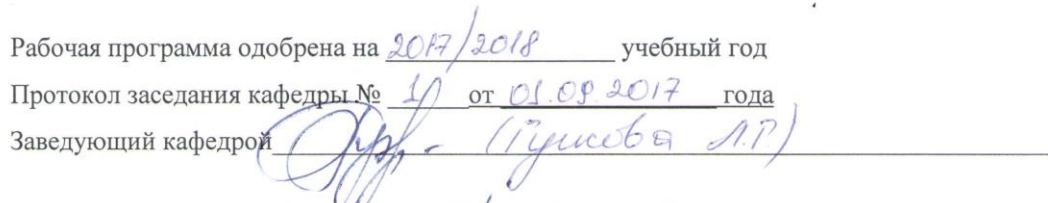 Рабочая программа одобрена на 2017/2018 учебный год
Протокол заседания кафедры № 1 от 01.09.2017 года
Заведующий кафедрой